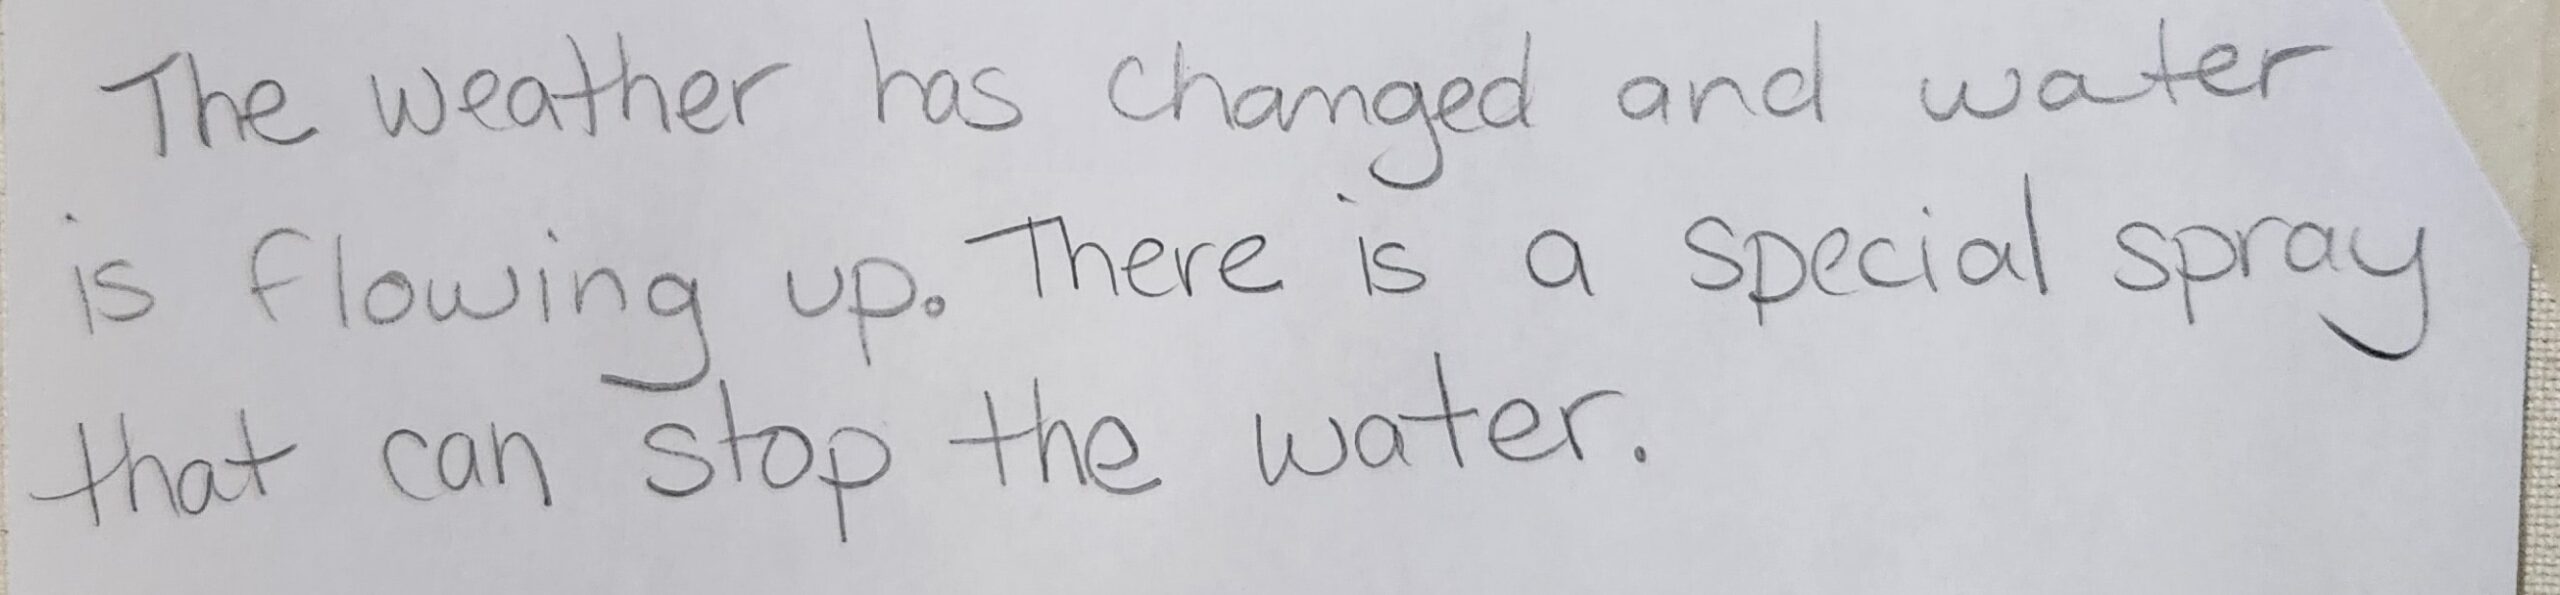 The weather has changed and water
is flowing up. There is a special spray
that can stop the water.